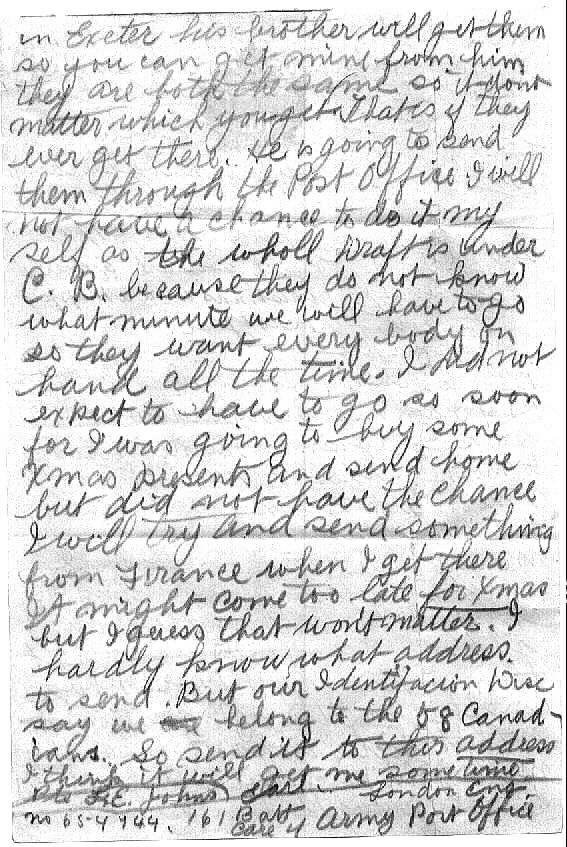 in Exeter his brother will get them
so you can get mine from him
they are both the same so it dont
matter which you get. That is if they
ever get there. He is going to send
them through the Post Office I will
not have a chance to do it my
self as the wholl Draft is under
C. B. because they do not know
what minute we will have to go
so they want every body on
hand all the time. I did not
expect to have to go so soon
for I was going to buy some
Xmas presents and send home
but did not have the chance
I will try and send something
from France when I get there
It might come too late for Xmas
but I guess that wont matter. I
hardly know what address.
to send. But our Identifacion Disc
say we belong to the 58 Canad-
ians. So send it to this address
I think it will get me sometime
Pte F.E. Johns London Eng.
no 654744. 161 Batt
Care of Army Post Office